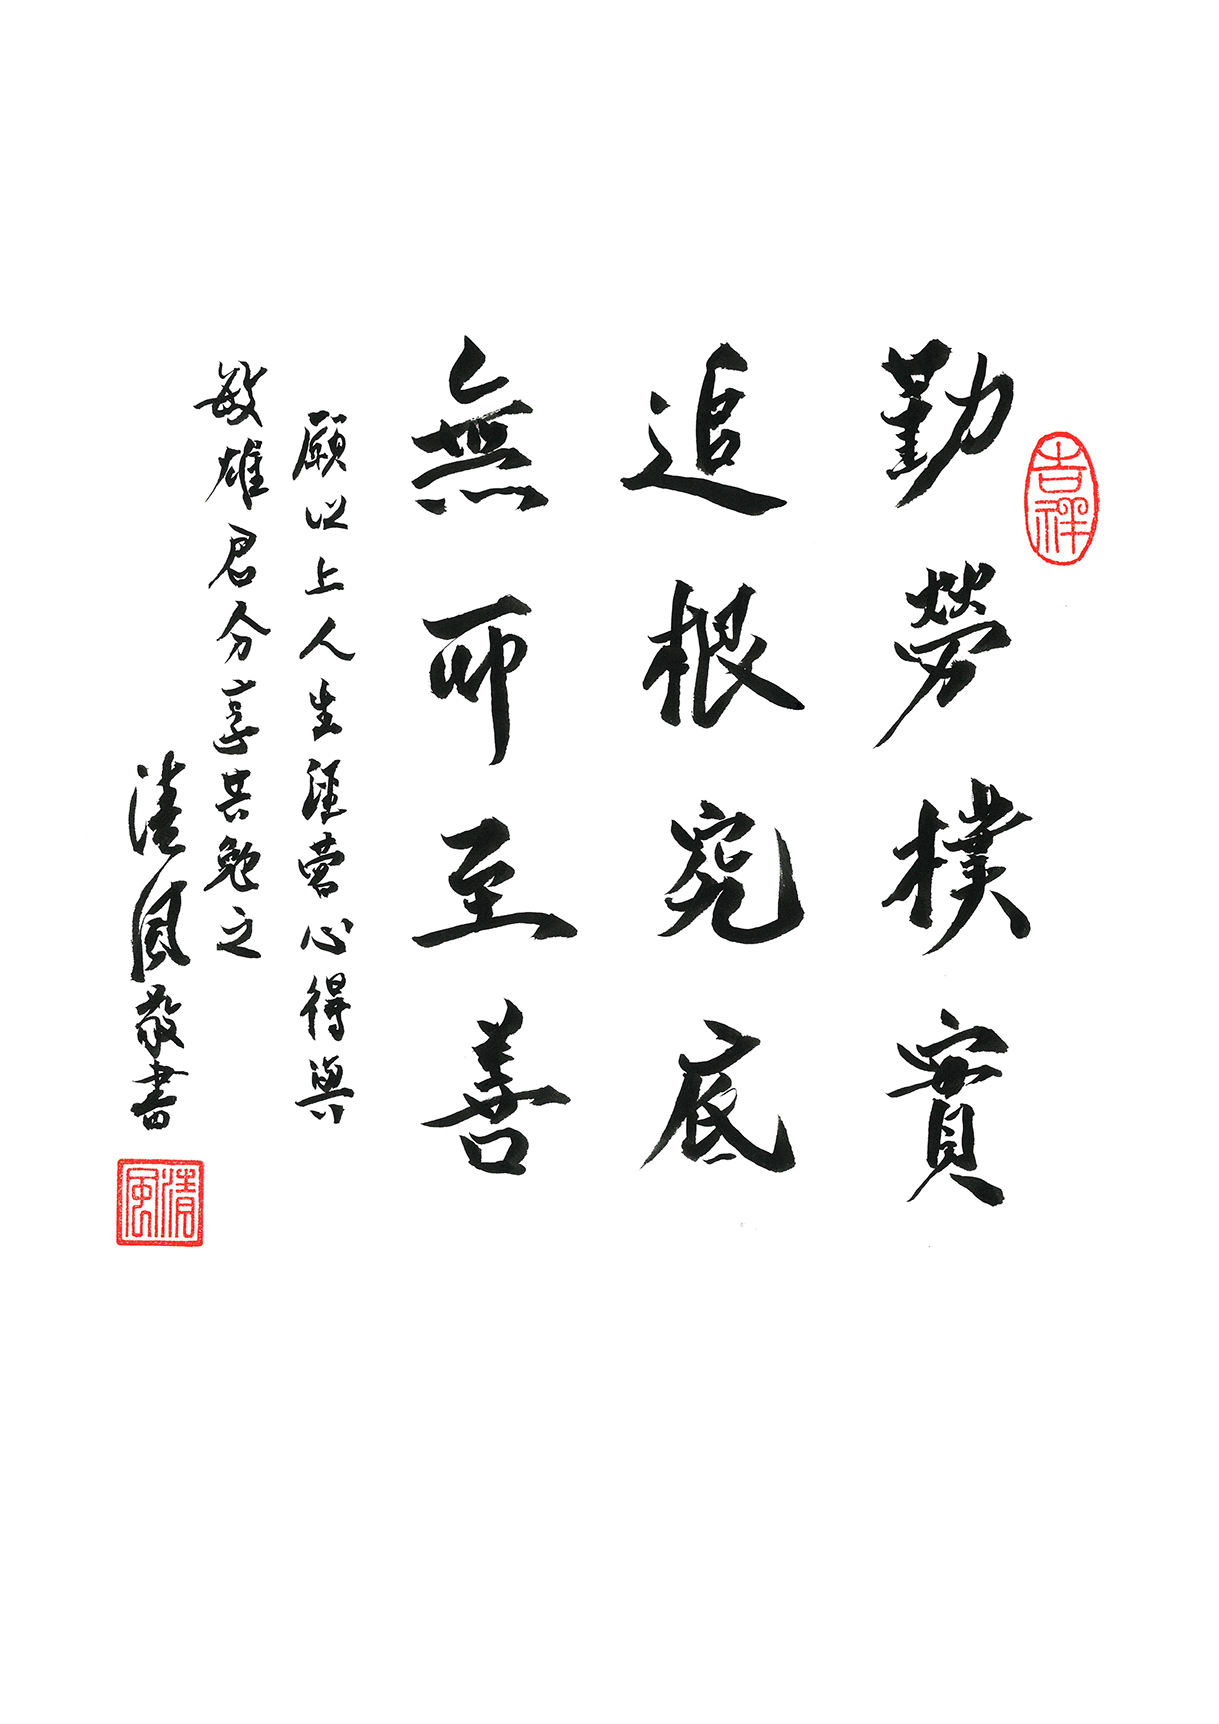 吉祥
勤勞樸實
追根究底
無所至善
願以上人生經營心得與
敏雄君分享共勉之
清風敬書
清風